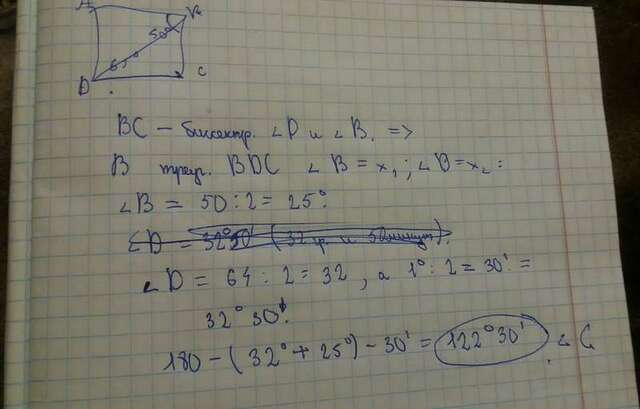 A B
50°
65°
D C
BC – биссектр. ∠D и ∠B. =>
В треуг. BDC ∠B = x₁; ∠D = x₂ :
∠B = 50 : 2 = 25°
∠D = 32°50' (32 гр и 50 минут).
∠D = 64 : 2 = 32, а 1° : 2 = 30' =
32° 30'.
180 – (32° + 25°) – 30' = 122° 30' . ∠C